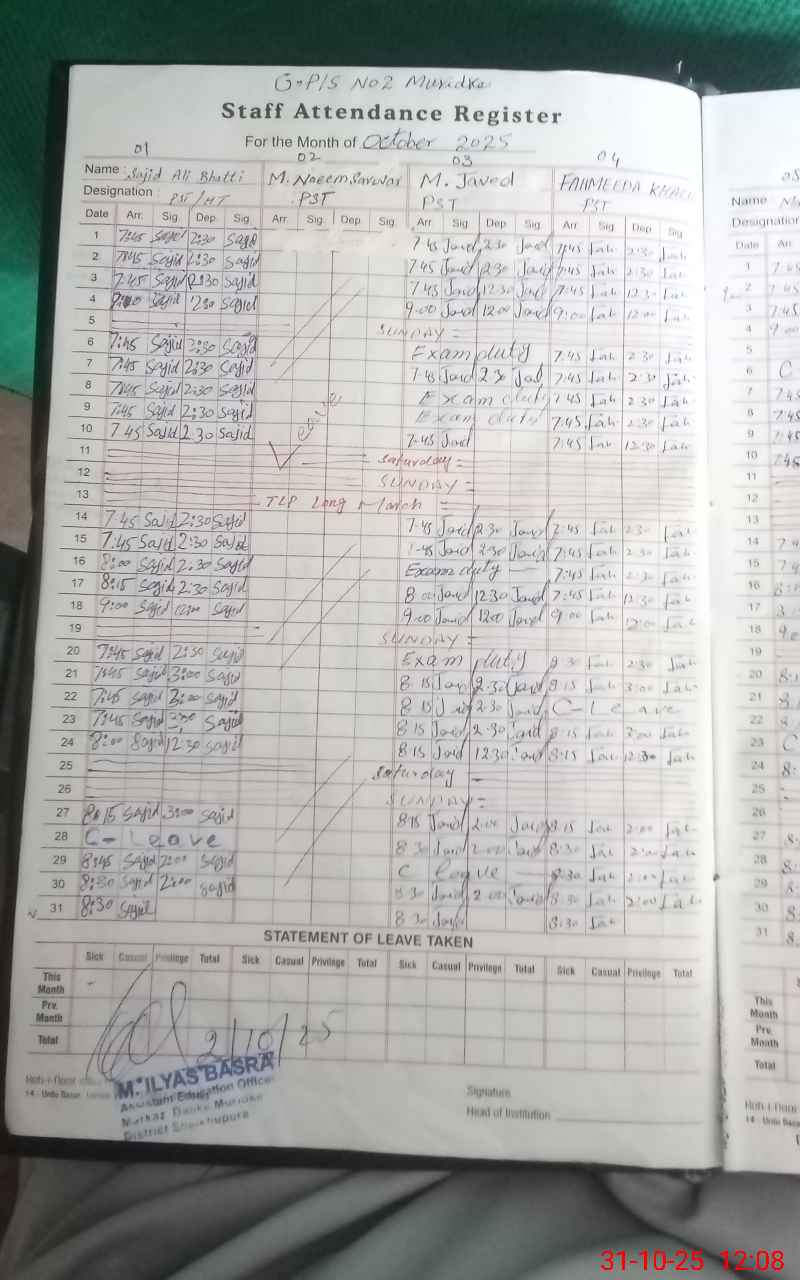 G.P/S No2 Muridke
Staff Attendance Register
For the Month of October 2025
01 02 03 04
Name : Sajid Ali Bhatti M. Naeem Sarwar M. Javed FAHMEEDA
Designation : PST/HT PST PST PST
Date Arr. Sig. Dep. Sig. Arr. Sig. Dep. Sig. Arr. Sig. Dep. Sig. Arr. Sig. Dep. Sig.
1 7:45 Sajid 2:30 Sajid 7 45 Javid 2 30 Javid 7:45 fah 2:30 fah
2 7:45 Sajid 2:30 Sajid 7 45 Javid 2 30 Javid 7:45 fah 2:30 fah
3 7:45 Sajid 12:30 Sajid 7 45 Javid 12 30 Javid 7:45 fah 12 30 fah
4 Sajid 12:00 Sajid 9 00 Javid 12 00 Javid 9:00 fah 12:00 fah
5 SUNDAY =
6 7:45 Sajid 2:30 Sajid Exam duty 7:45 fah 2 30 fah
7 7:45 Sajid 2:30 Sajid 7 45 Javid 2 30 7:45 fah 2:30 fah
8 7:45 Sajid 2:30 Sajid Exam duty 7:45 fah 2:30 fah
9 7:45 Sajid 2:30 Sajid Exam duty 7:45 fah 2:30 fah
10 7 45 Sajid 2:30 Sajid 7-45 Javid 7:45 fah 12:30 fah
11 Saturday =
12 SUNDAY =
13 TLP Long March =
14 7:45 Sajid 2:30 Sajid 7-45 Javid 2 30 Javid 7:45 fah 2:30 fah
15 7:45 Sajid 2:30 Sajid 7-45 Javid 2 30 Javid 7:45 fah 2:30 fah
16 8:00 Sajid 2:30 Sajid Exam duty 7:45 fah 2:30 fah
17 8:15 Sajid 2:30 Sajid 8 00 Javid 12:30 Javid 7:45 fah 12:30 fah
18 9:00 Sajid 12:00 Sajid 9 00 Javid 12 00 Javid 9 00 fah 12:00 fah
19 SUNDAY =
20 7:45 Sajid 2:30 Sajid Exam duty 8 30 fah 2:30 fah
21 7:45 Sajid 3:00 Sajid 8 15 Javid 2 30 Javid 8:15 fah 3:00 fah
22 7:45 Sajid 3:00 Sajid 8 15 Javid 2 30 Javid C-Leave
23 7:45 Sajid Sajid 8 15 Javid 2 30 Javid 8:15 fah 3:00 fah
24 8:00 Sajid 12:30 Sajid 8 15 Javid 12 30 Javid 8:15 fah 12:30 fah
25 Saturday
26 SUNDAY =
27 8:15 Sajid 3:00 Sajid 8 15 Javid 2:00 Javid 8:15 fah 2:00 fah
28 C-Leave 8 30 Javid 2:00 Javid 8:30 fah 2:00 fah
29 8:45 Sajid 2:00 Sajid C Leave 8:30 fah 2:00 fah
30 8:30 Sajid 2:00 Sajid 8 30 Javid 2 00 Javid 8:30 fah 2:00 fah
31 8:30 Sajid 8 30 Javid 8:30 fah
STATEMENT OF LEAVE TAKEN
Sick Casual Privilege Total Sick Casual Privilege Total Sick Casual Privilege Total Sick Casual Privilege Total
This Month
Prv. Month
Total
2/10/25
M. ILYAS BASRA
Assistant Education Officer
Markaz Daoke Muridke
District Sheikhupura
Signature
Head of Institution
05
Name
Designation
Date Arr.
1 7:45
2 7:45
3 7:45
4 9:00
5
6 C
7 7:45
8 7:45
9 7:45
10 7:45
11
12
13
14 7:45
15 7:4
16
17
18
19
20
21
22
23 C
24
25
26
27
28
29
30
31
This Month
Prv. Month
Total
31-10-25 12:08